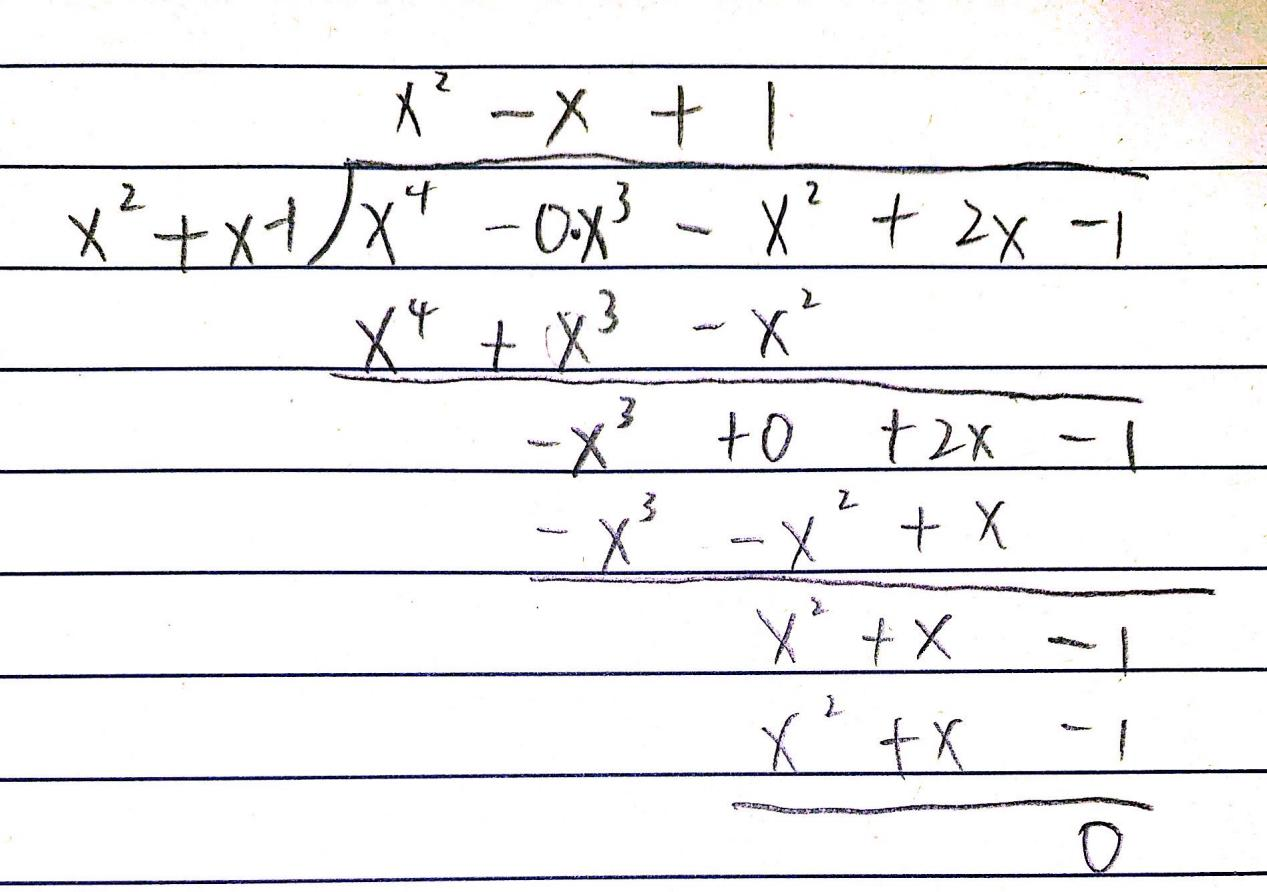 x² - x + 1
x² + x - 1 ) x⁴ - 0·x³ - x² + 2x - 1
x⁴ + x³ - x²
-x³ + 0 + 2x - 1
-x³ - x² + x
x² + x - 1
x² + x - 1
0